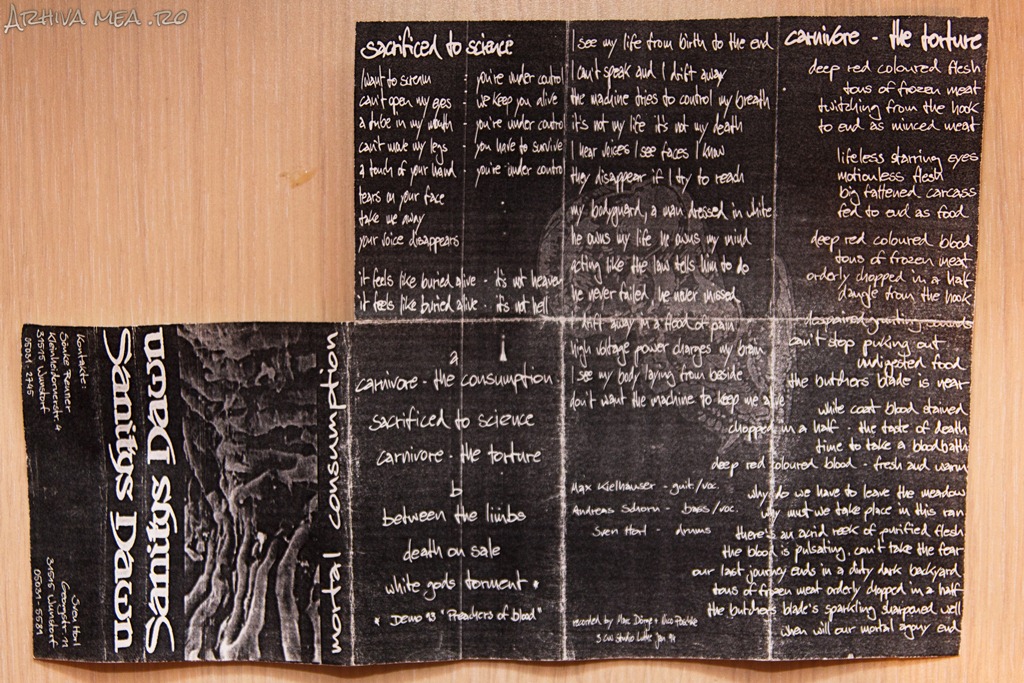 ARHIVA MEA.RO
sacrificed to science
I want to scream - you're under control
can't open my eyes - we keep you alive
a tube in my mouth - you're under control
can't move my legs - you have to survive
a touch of your hand - you're under control
tears on your face
take me away
your voice disappears
it feels like buried alive - it's not heaven
it feels like buried alive - it's not hell
I see my life from birth to the end
I can't speak and I drift away
the machine tries to control my breath
it's not my life it's not my death
I hear voices I see faces I know
they disappear if I try to reach
my bodyguard, a man dressed in white
he owns my life he owns my mind
acting like the law tells him to do
he never failed, he never missed
I drift away in a flood of pain
high voltage power charges my brain
I see my body laying from beside
don't want the machine to keep me alive
Max Kielhauser - guit./voc.
Andreas Schorn - bass/voc.
Sven Horl - drums
recorded by
Studio Jan 94
carnivore - the torture
deep red coloured flesh
tons of frozen meat
twitching from the hook
to end as minced meat
lifeless starring eyes
motionless flesh
big fattened carcass
fed to end as food
deep red coloured blood
tons of frozen meat
orderly chopped in a half
dangle from the hook
despaired grunting sounds
can't stop puking out
undigested food
the butchers blade is near
white coat blood stained
chopped in a half - the taste of death
time to take a bloodbath
deep red coloured blood - fresh and warm
why do we have to leave the meadow
why must we take place in this ran
there's an acrid reek of purified flesh
the blood is pulsating, can't take the fear
our last journey ends in a duty dark backyard
tons of frozen meat orderly chopped in a half
the butcher's blade's sparkling sharpened well
when will our mortal agony end
a
carnivore - the consumption
sacrificed to science
carnivore - the torture
b
between the limbs
death on sale
white gods torment *
* Demo 93 "Preachers of blood"
mortal consumption
Sanitys Dawn
Sanitys Dawn
Kontakte:
Sönke Renner
Kleinheidornerstr. 4
31515 Wunstorf
05031-2745
Sven Horl
Georgstr. 11
31515 Wunstorf
05031-5581